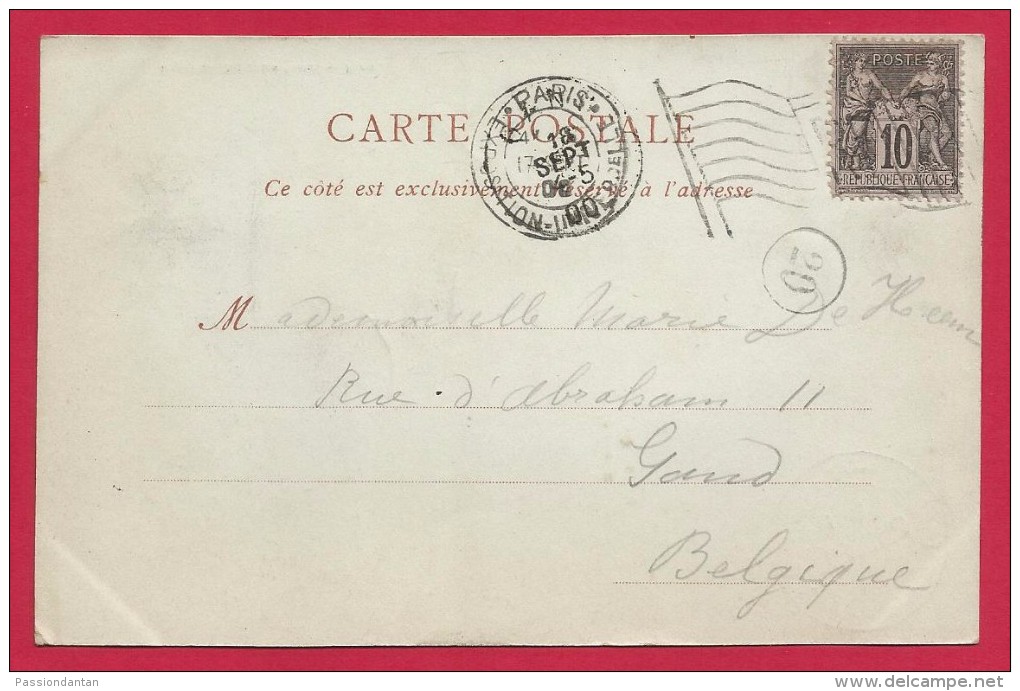 POSTE
10
REPUBLIQUE FRANÇAISE
PARIS
18
SEPT
00
CARTE POSTALE
Ce côté est exclusivement réservé à l'adresse
20
Mademoiselle Marie De Heem
Rue d'Abraham 11
Gand
Belgique
Passiondantan
delcampe.net